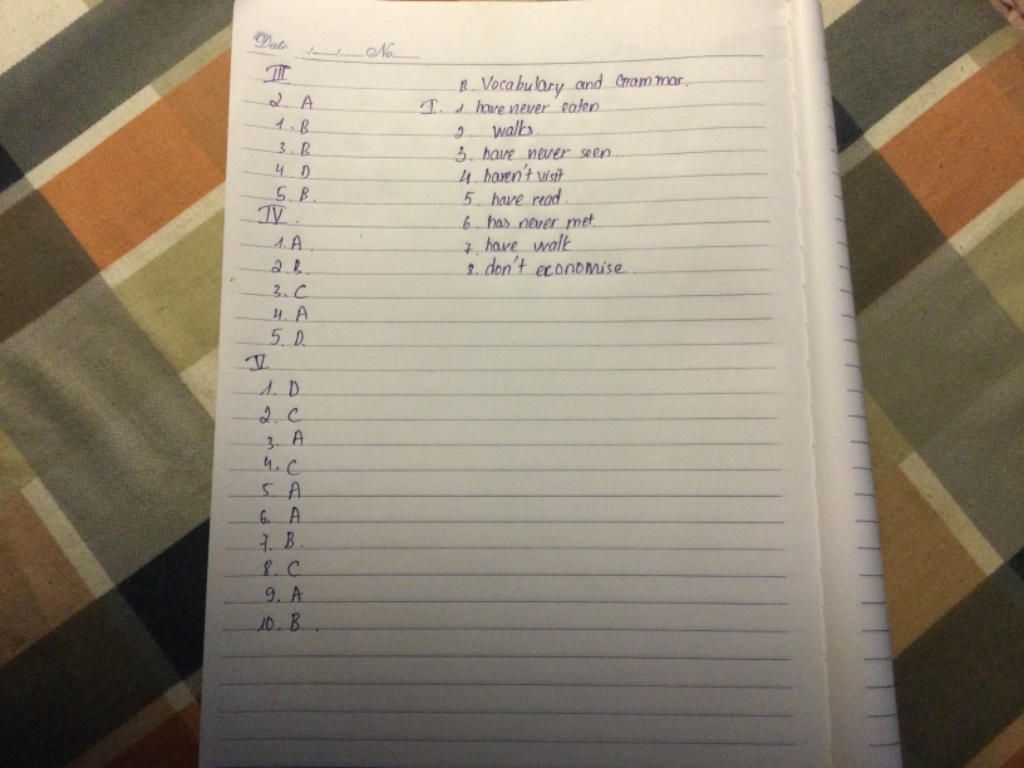 Date ..../..../.... No.........
III
2. A
1. B
3. B
4 D
5. B.
IV.
1. A.
2. B.
3. C
4. A
5. D.
V.
1. D
2. C
3. A
4. C
5. A
6. A
7. B.
8. C
9. A
10. B.
B. Vocabulary and Grammar.
I. 1 have never eaten
2. walks.
3. have never seen
4. haven't visit
5. have read.
6. has never met.
7. have walk
8. don't economise.